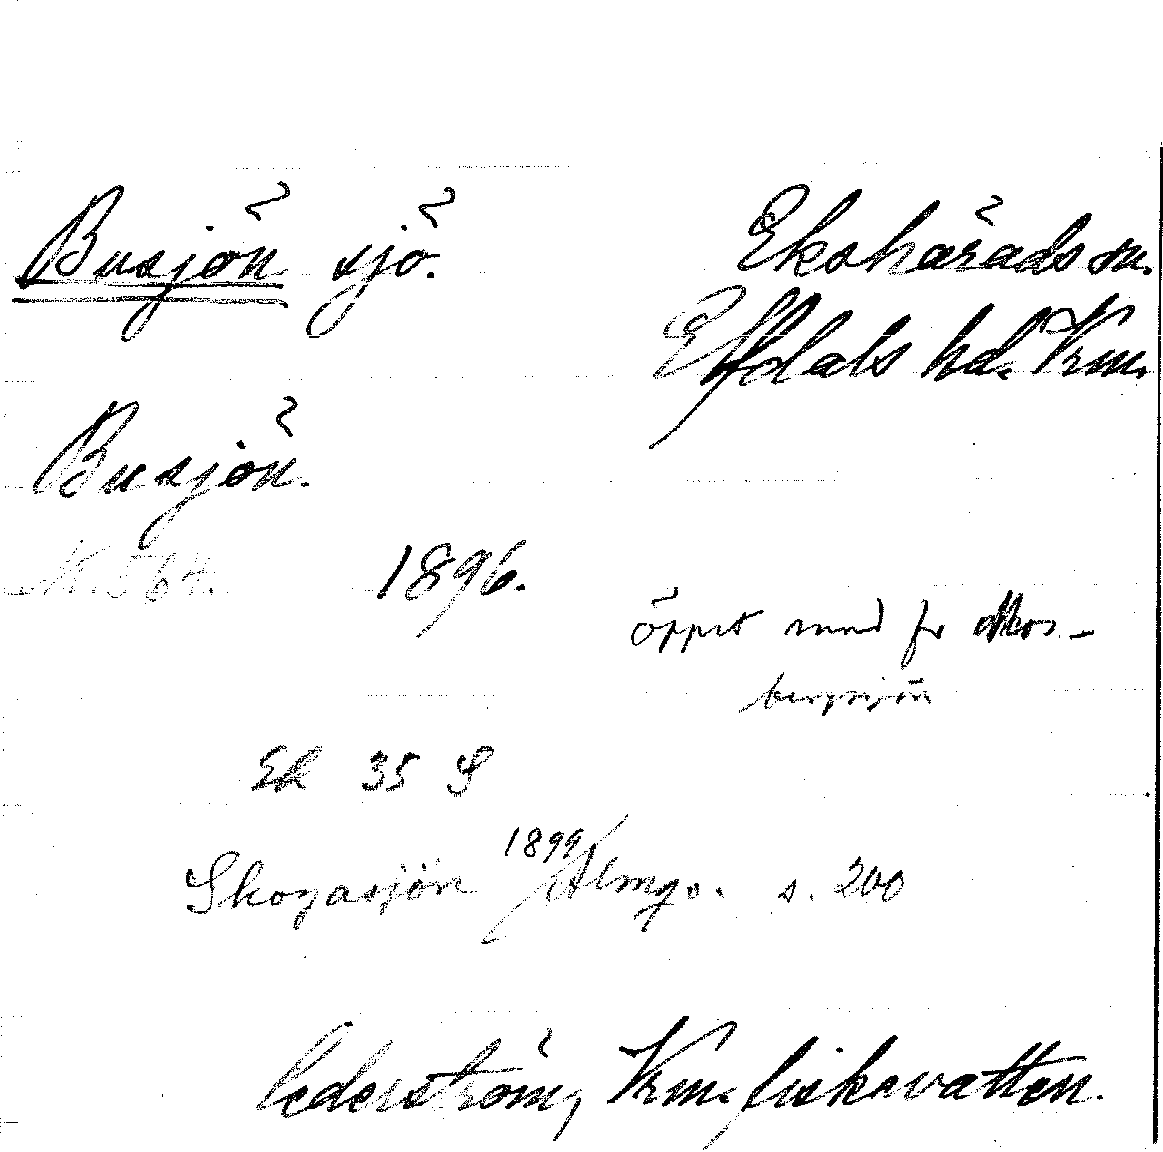 Busjön sjö. Ekshärads sn.
Elfdals hd. Vrm.
Busjön.
N. 564. 1896.
öppet sund fr Mos-
bergsjön
Ek 35 S
Skogasjön 1899 Almg. s. 200
Cederström, Vrm. fiskevatten.